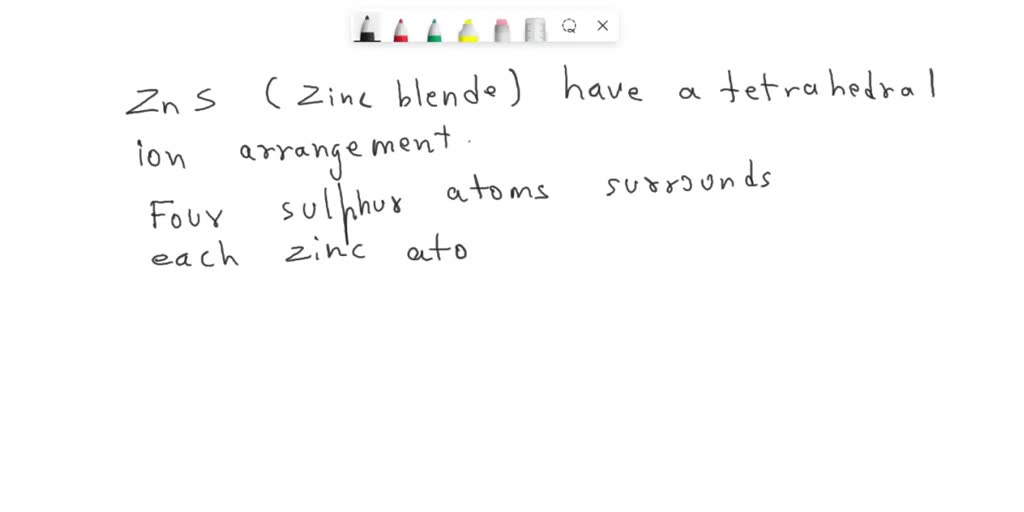 ZnS (Zinc blende) have a tetrahedral
ion arrangement.
Four sulphur atoms surrounds
each zinc ato